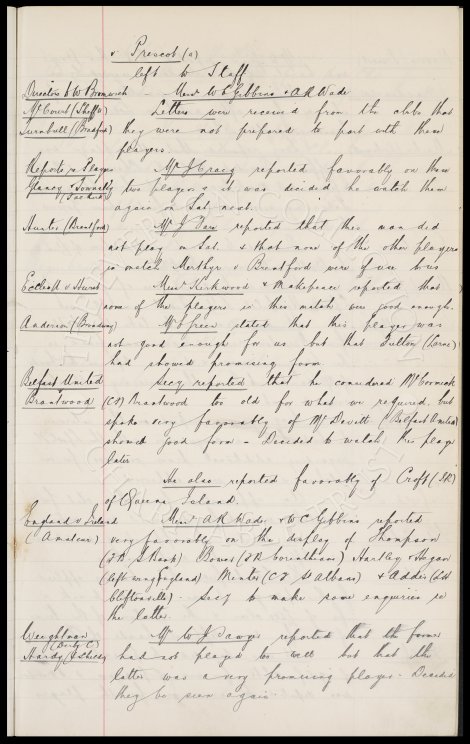 v Prescot (a)
left to Staff
Directors to W Bromwich - Messrs W C Gibbins & A R Wade
McCourt (Sheff U) Letters were received from the clubs that
Turnbull (Bradford) they were not prepared to part with these
players.
Reports re Players Mr J Craig reported favorably on these
Glancy & Donnelly two players & it was decided he watch them
again on Sat. next.
Hurter (Brentford) Mr J reported that this man did
not play on Sat. & that none of the other players
in match Merthyr v Brentford were of use to us
Eccles R v Hurst Messrs Kirkwood & Makepeace reported that
none of the players in this match were good enough.
Anderson (Broadway) Mr Green stated that this player was
not good enough for us but that Fulton (Larne)
had showed promising form.
Belfast United Secy reported that he considered McCormick
Brantwood (CF) Brantwood too old for what we required, but
spoke very favorably of McDevitt (Belfast United)
showed good form - Decided to watch this player
later
He also reported favorably of Croft (IR)
of Queens Island.
England v Ireland Messrs A R Wade & W C Gibbins reported
(Amateur) very favorably on the display of Thompson
(IR S Bank) Bower (FR Corinthians) Hartley & Hogan
(left wing England) Minter (CF St Albans) & Addis (LH
Cliftonville). Secy to make some enquiries re
the latter.
Weightman Mr W J Sawyer reported that the former
(Derby C)
Hardy had not played too well but that the
latter was a very promising player. Decided
they be seen again.